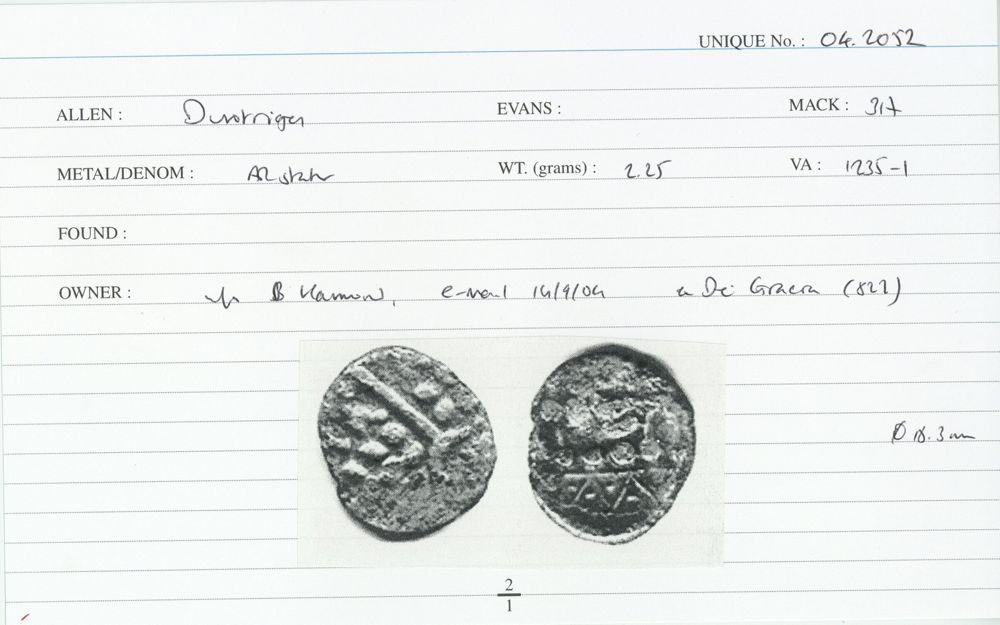 UNIQUE No. : 04.2052
ALLEN : Durotriges EVANS : MACK : 317
METAL/DENOM : AR stater WT. (grams) : 2.25 VA : 1235-1
FOUND :
OWNER : B e-mail 14/9/04 De Graera (822)
Ø 18.3 mm
2
1